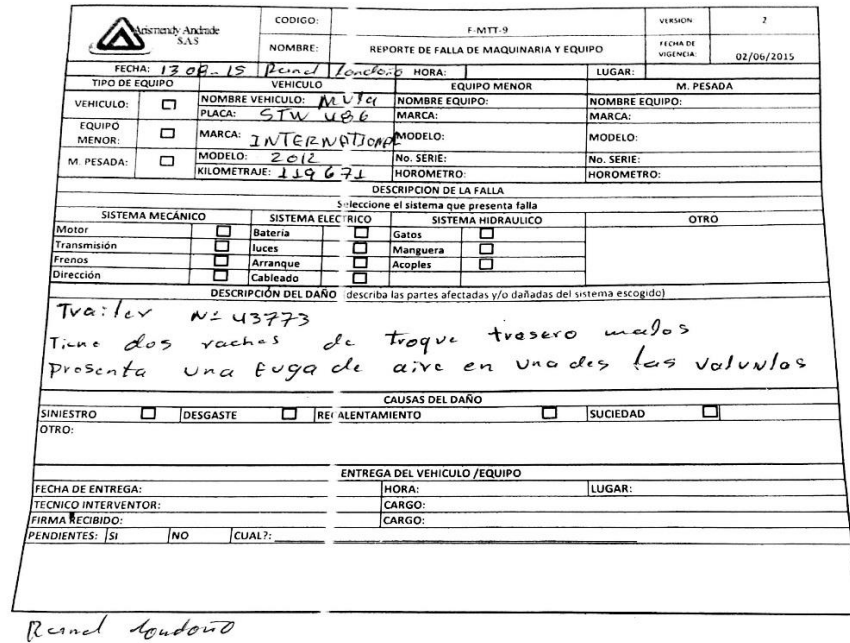 Arismendy Andrade
S.A.S
CODIGO: F-MTT-9 VERSION 2
NOMBRE: REPORTE DE FALLA DE MAQUINARIA Y EQUIPO FECHA DE VIGENCIA: 02/06/2015
FECHA: 13 08-15 Londoño HORA: LUGAR:
TIPO DE EQUIPO VEHICULO EQUIPO MENOR M. PESADA
VEHICULO: NOMBRE VEHICULO: Mula NOMBRE EQUIPO: NOMBRE EQUIPO:
PLACA: STW 486 MARCA: MARCA:
EQUIPO MENOR: MARCA: INTERNATIONAL MODELO: MODELO:
M. PESADA: MODELO: 2012 No. SERIE: No. SERIE:
KILOMETRAJE: 119671 HOROMETRO: HOROMETRO:
DESCRIPCION DE LA FALLA
Seleccione el sistema que presenta falla
SISTEMA MECÁNICO SISTEMA ELECTRICO SISTEMA HIDRAULICO OTRO
Motor Bateria Gatos
Transmisión luces Manguera
Frenos Arranque Acoples
Dirección Cableado
DESCRIPCIÓN DEL DAÑO (describa las partes afectadas y/o dañadas del sistema escogido)
Trailer Nº 43773
Tiene dos raches de troque trasero malos
Presenta una fuga de aire en una des las valvulas
CAUSAS DEL DAÑO
SINIESTRO DESGASTE RECALENTAMIENTO SUCIEDAD
OTRO:
ENTREGA DEL VEHICULO /EQUIPO
FECHA DE ENTREGA: HORA: LUGAR:
TECNICO INTERVENTOR: CARGO:
FIRMA RECIBIDO: CARGO:
PENDIENTES: SI NO CUAL?:
Londoño